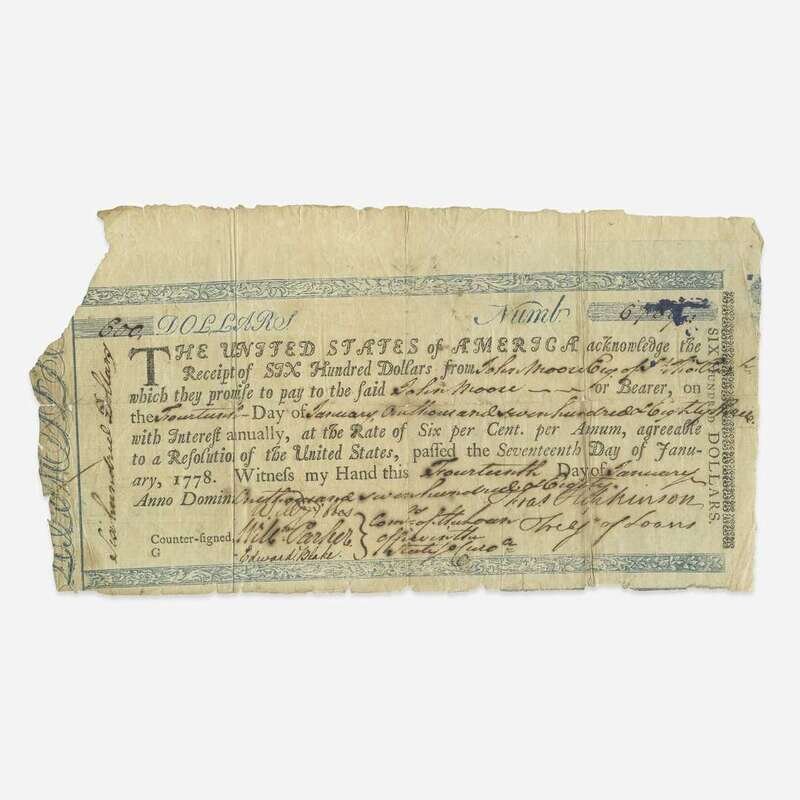 600, DOLLARS Numb
THE UNITED STATES of AMERICA acknowledge the
Receipt of SIX Hundred Dollars from John Moore Esq. of
which they promise to pay to the said John Moore — — or Bearer, on
the Fourteenth Day of January, Onethousand sevenhundred & Eighty three
with Interest annually, at the Rate of Six per Cent. per Annum, agreeable
to a Resolution of the United States, passed the Seventeenth Day of Janu-
ary, 1778. Witness my Hand this Fourteenth Day of January
Anno Domini Onethousand sevenhundred & Eighty
Counter-signed,
G
Will Gibbes
Willm Parker
Edward Blake.
Comrs. of the Loan
Office in the
State of So Ca
Thos Hopkinson
Treasr of Loans
Six hundred Dollars
SIX HUNDRED DOLLARS.